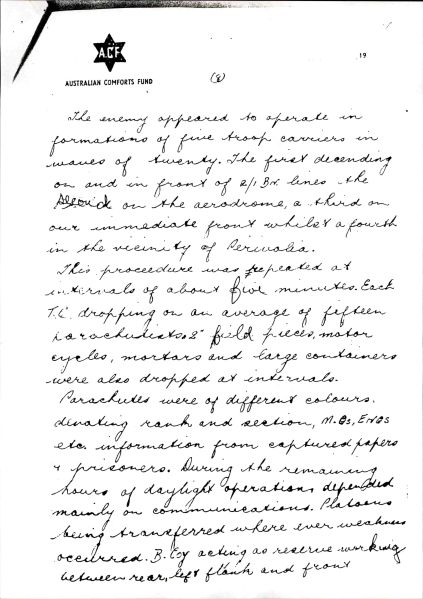 A.C.F
AUSTRALIAN COMFORTS FUND
19
(8)
The enemy appeared to operate in
formations of five troop carriers in
waves of twenty. The first decending
on and in front of 2/1 Bn lines the
second on the aerodrome, a third on
our immediate front whilst a fourth
in the vicinity of Perivolia.
This proceedure was repeated at
intervals of about five minutes. Each
T.C. dropping on an average of fifteen
parachutists, field pieces, motor
cycles, mortars and large containers
were also dropped at intervals.
Parachutes were of different colours.
denoting rank and section, M.Gs, ENGs
etc. information from captured papers
& prisoners. During the remaining
hours of daylight operations depended
mainly on communications. Platoons
being transferred where ever weakness
occurred. B. Coy acting as reserve working
between rear, left flank and front